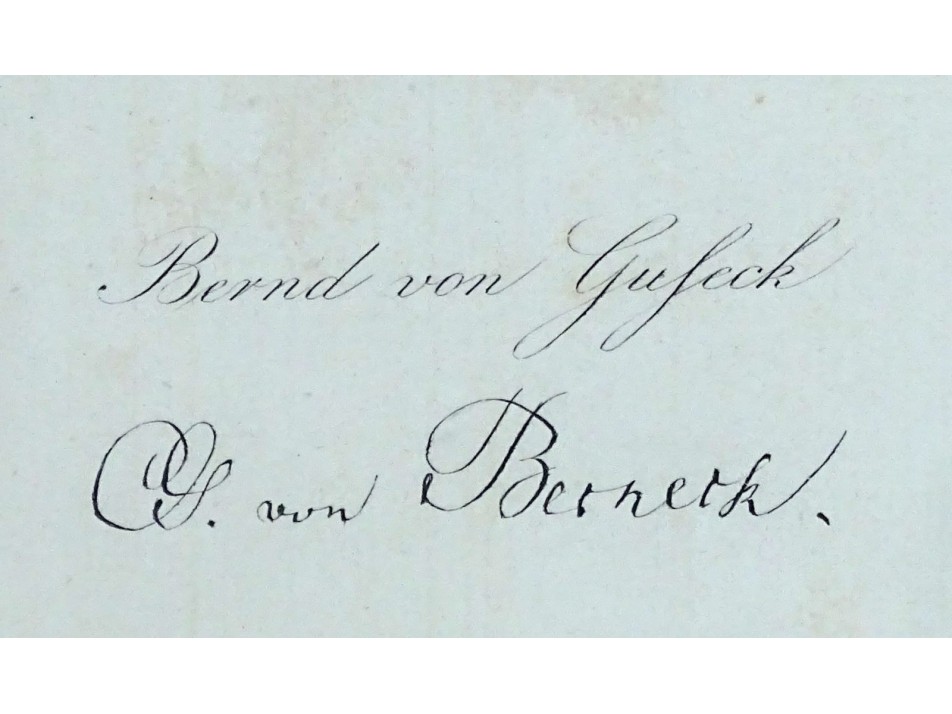 Bernd von Guſeck
G. von Berneck.